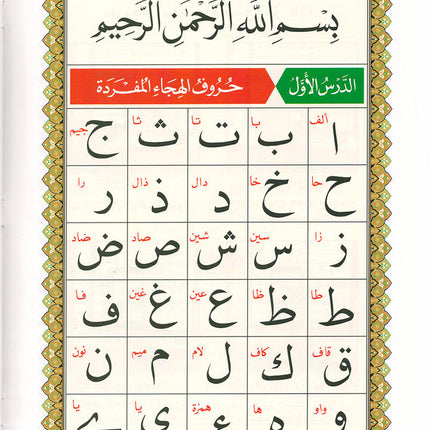 بِسْمِ اللَّهِ الرَّحْمَٰنِ الرَّحِيمِ
الدَّرْسُ الأَوَّلُ حُرُوفُ الهِجَاءِ المُفْرَدَة
ألف با تا ثا جيم
ا ب ت ث ج
حا خا دال ذال را
ح خ د ذ ر
زا سين شين صاد ضاد
ز س ش ص ض
طا ظا عين غين فا
ط ظ ع غ ف
قاف كاف لام ميم نون
ق ك ل م ن
واو ها همزة يا يا
و ه ء ي ے